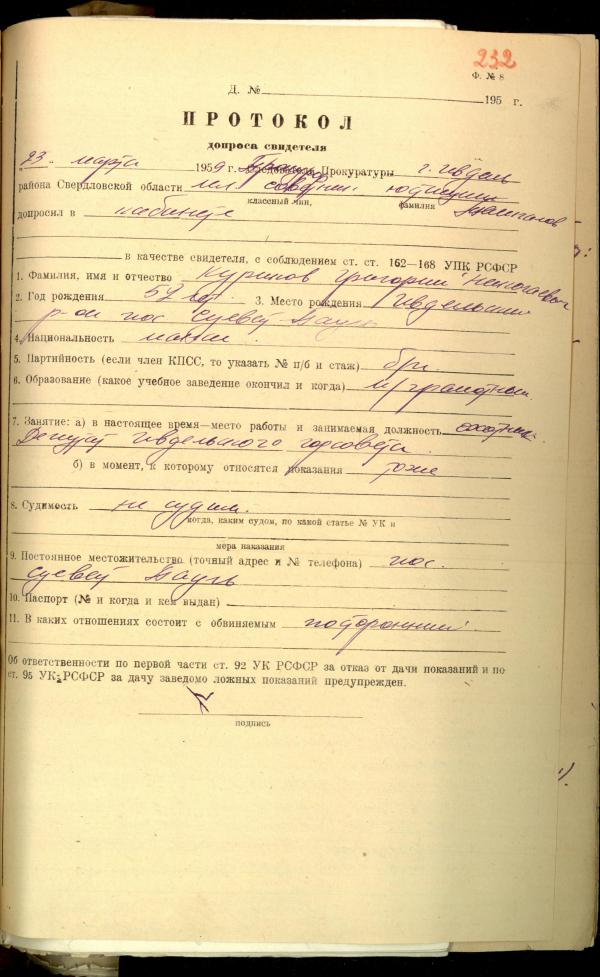 232
Ф. № 8
Д. № 195 г.
ПРОТОКОЛ
допроса свидетеля
23 марта 1959 г. Прокурор Прокуратуры г. Ивдель
района Свердловской области мл. советник юстиции
классный чин, фамилия
допросил в кабинете Темпалов
в качестве свидетеля, с соблюдением ст. ст. 162—168 УПК РСФСР
1. Фамилия, имя и отчество Куриков Григорий
2. Год рождения 52 лет. 3. Место рождения Ивдельский
р-он пос Суеват Пауль
4. Национальность манси.
5. Партийность (если член КПСС, то указать № п/б и стаж) б/п.
6. Образование (какое учебное заведение окончил и когда) м/грамотный.
7. Занятие: а) в настоящее время—место работы и занимаемая должность охотник.
Депутат Ивдельского горсовета.
б) в момент, к которому относятся показания тоже
8. Судимость не судим.
когда, каким судом, по какой статье № УК и
мера наказания
9. Постоянное местожительство (точный адрес и № телефона) пос.
Суеват Пауль
10. Паспорт (№ и когда и кем выдан)
11. В каких отношениях состоит с обвиняемым посторонний
Об ответственности по первой части ст. 92 УК РСФСР за отказ от дачи показаний и по
ст. 95 УК РСФСР за дачу заведомо ложных показаний предупрежден.
подпись